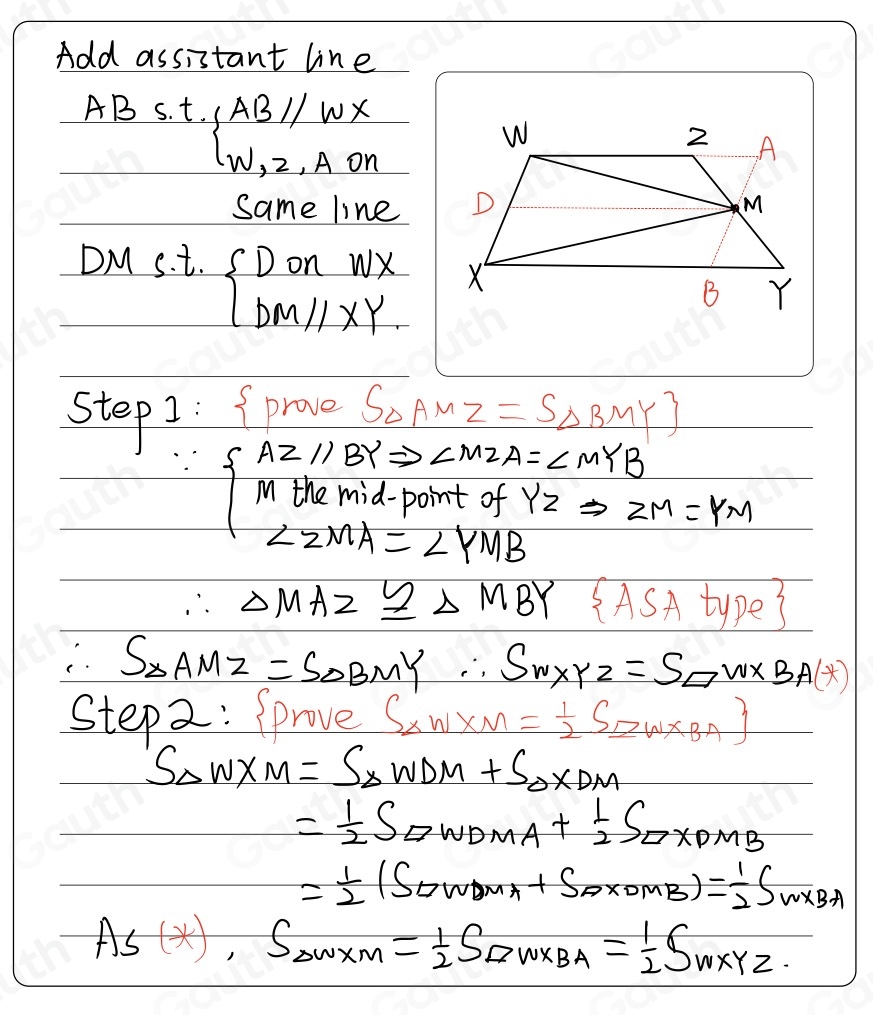 Add assistant line
AB s.t. { AB // WX
W, Z, A on
same line
DM s.t. { D on WX
DM // XY.
W Z A
D M
X B Y
Step 1: {prove S△AMZ = S△BMY}
∵ { AZ // BY ⇒ ∠MZA = ∠MYB
M the mid-point of YZ ⇒ ZM = YM
∠ZMA = ∠YMB
∴ △MAZ ≌ △MBY {ASA type}
∴ S△AMZ = S△BMY ∴ SWXYZ = S▱WXBA (*)
Step 2: {prove S△WXM = 1/2 S▱WXBA}
S△WXM = S△WDM + S△XDM
= 1/2 S▱WDMA + 1/2 S▱XDMB
= 1/2 (S▱WDMA + S▱XDMB) = 1/2 SWXBA
As (*), S△WXM = 1/2 S▱WXBA = 1/2 SWXYZ.
Gauth